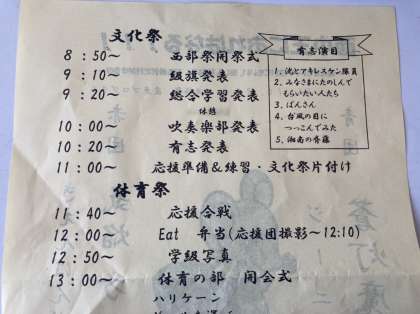 文化祭
8：50～ 西部祭開祭式
9：10～ 級旗発表
9：20～ 総合学習発表
休憩
10：00～ 吹奏楽部発表
10：20～ 有志発表
11：00～ 応援準備＆練習・文化祭片付け
有志演目
1、沈ヒアキレスケン隊員
2、みなさまにたのしんで
もらいたい人たち
3、ばんさん
4、台風の目に
つっこんでみた
5、湘南の斉藤
体育祭
11：40～ 応援合戦
12：00～ Eat 弁当(応援団撮影～12:10)
12：50～ 学級写真
13：00～ 体育の部 開会式
ハリケーン